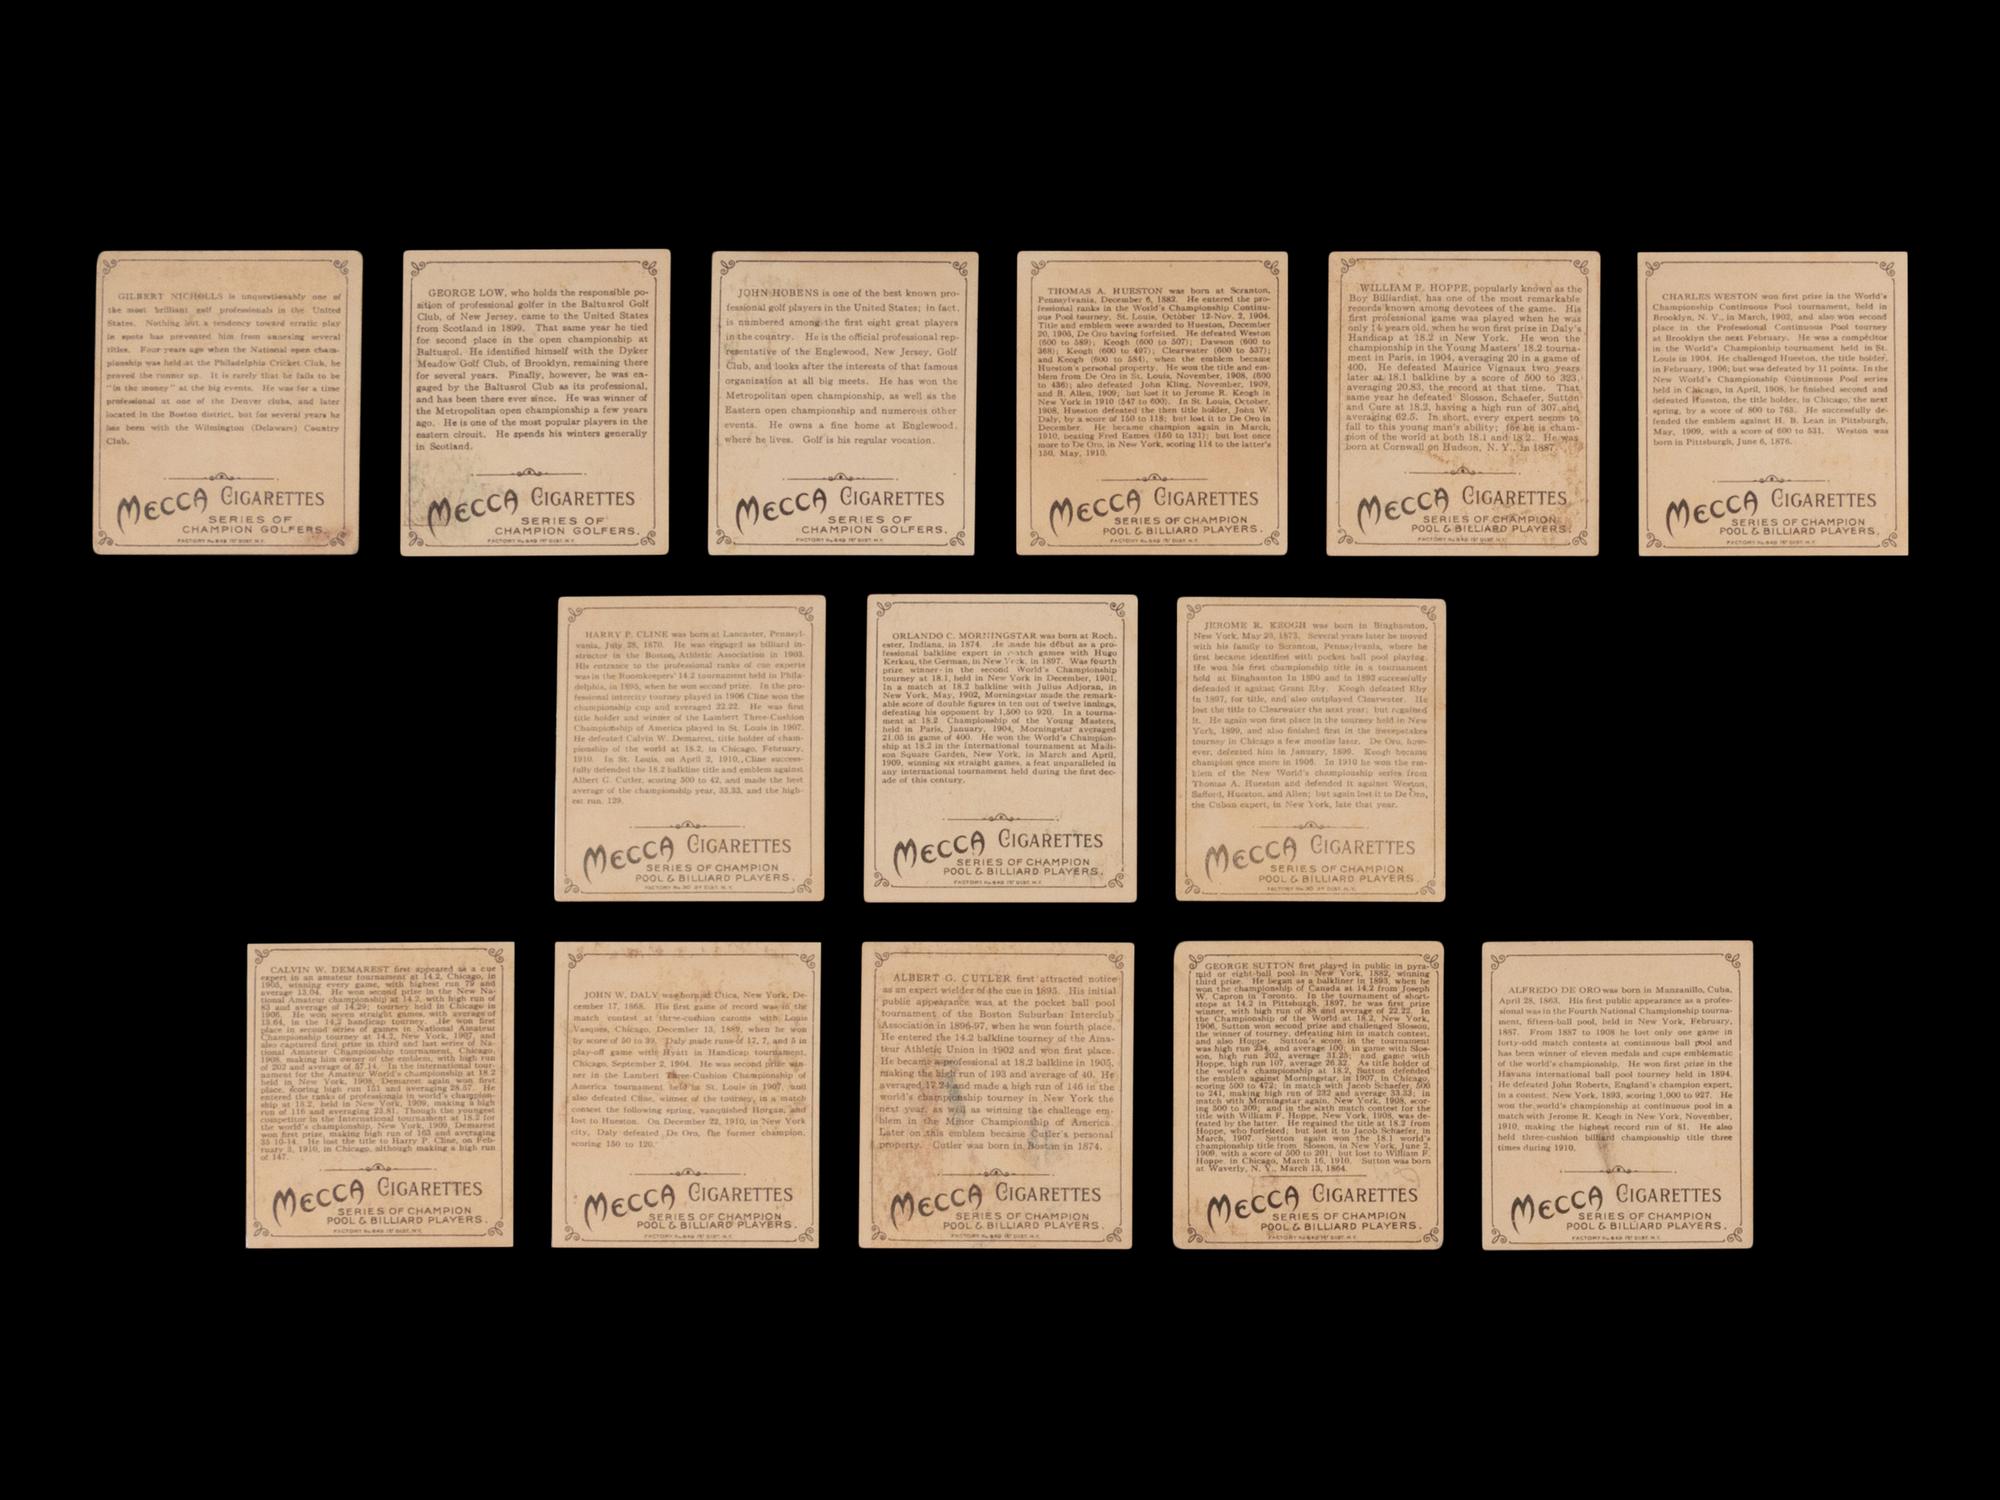 GILBERT NICHOLLS is unquestionably one of
the most brilliant golf professionals in the United
States. Nothing but a tendency toward erratic play
in spots has prevented him from annexing several
titles. Four years ago when the National open cham-
pionship was held at the Philadelphia Cricket Club, he
proved the runner up. It is rarely that he fails to be
"in the money" at the big events. He was for a time
professional at one of the Denver clubs, and later
located in the Boston district, but for several years he
has been with the Wilmington (Delaware) Country
Club.
MECCA CIGARETTES
SERIES OF
CHAMPION GOLFERS.
FACTORY No. 649 1ST DIST. N.Y.
GEORGE LOW, who holds the responsible po-
sition of professional golfer in the Baltusrol Golf
Club, of New Jersey, came to the United States
from Scotland in 1899. That same year he tied
for second place in the open championship at
Baltusrol. He identified himself with the Dyker
Meadow Golf Club, of Brooklyn, remaining there
for several years. Finally, however, he was en-
gaged by the Baltusrol Club as its professional,
and has been there ever since. He was winner of
the Metropolitan open championship a few years
ago. He is one of the most popular players in the
eastern circuit. He spends his winters generally
in Scotland.
MECCA CIGARETTES
SERIES OF
CHAMPION GOLFERS.
FACTORY No. 649 1ST DIST. N.Y.
JOHN HOBENS is one of the best known pro-
fessional golf players in the United States; in fact,
is numbered among the first eight great players
in the country. He is the official professional rep-
resentative of the Englewood, New Jersey, Golf
Club, and looks after the interests of that famous
organization at all big meets. He has won the
Metropolitan open championship, as well as the
Eastern open championship and numerous other
events. He owns a fine home at Englewood,
where he lives. Golf is his regular vocation.
MECCA CIGARETTES
SERIES OF
CHAMPION GOLFERS.
FACTORY No. 649 1ST DIST. N.Y.
THOMAS A. HUESTON was born at Scranton,
Pennsylvania, December 6, 1882. He entered the pro-
fessional ranks in the World's Championship Continu-
ous Pool tourney, St. Louis, October 12-Nov. 2, 1904.
Title and emblem were awarded to Hueston, December
20, 1905, De Oro having forfeited. He defeated Weston
(600 to 589); Keogh (600 to 507); Dawson (600 to
368); Keogh (600 to 497); Clearwater (600 to 537);
and Keogh (600 to 584), when the emblem became
Hueston's personal property. He won the title and em-
blem from De Oro in St. Louis, November, 1908, (600
to 436); also defeated John Kling, November, 1909,
and B. Allen, 1909; but lost it to Jerome R. Keogh in
New York in 1910 (547 to 600). In St. Louis, October,
1908, Hueston defeated the then title holder, John W.
Daly, by a score of 150 to 118; but lost it to De Oro in
December. He became champion again in March,
1910, beating Fred Eames (150 to 131); but lost once
more to De Oro, in New York, scoring 114 to the latter's
150, May, 1910.
MECCA CIGARETTES
SERIES OF CHAMPION
POOL & BILLIARD PLAYERS.
FACTORY No. 649 1ST DIST. N.Y.
WILLIAM F. HOPPE, popularly known as the
Boy Billiardist, has one of the most remarkable
records known among devotees of the game. His
first professional game was played when he was
only 14 years old, when he won first prize in Daly's
Handicap at 18.2 in New York. He won the
championship in the Young Masters' 18.2 tourna-
ment in Paris, in 1904, averaging 20 in a game of
400. He defeated Maurice Vignaux two years
later at 18.1 balkline by a score of 500 to 323,
averaging 20.83, the record at that time. That
same year he defeated Slosson, Schaefer, Sutton
and Cure at 18.2, having a high run of 307 and
averaging 62.5. In short, every expert seems to
fall to this young man's ability; for he is cham-
pion of the world at both 18.1 and 18.2. He was
born at Cornwall on Hudson, N. Y., in 1887.
MECCA CIGARETTES
SERIES OF CHAMPION
POOL & BILLIARD PLAYERS.
FACTORY No. 649 1ST DIST. N.Y.
CHARLES WESTON won first prize in the World's
Championship Continuous Pool tournament, held in
Brooklyn, N. Y., in March, 1902, and also won second
place in the Professional Continuous Pool tourney
at Brooklyn the next February. He was a competitor
in the World's Championship tournament held in St.
Louis in 1904. He challenged Hueston, the title holder,
in February, 1906; but was defeated by 11 points. In the
New World's Championship Continuous Pool series
held in Chicago, in April, 1908, he finished second and
defeated Hueston, the title holder, in Chicago, the next
spring, by a score of 800 to 763. He successfully de-
fended the emblem against H. B. Lean in Pittsburgh,
May, 1909, with a score of 600 to 531. Weston was
born in Pittsburgh, June 6, 1876.
MECCA CIGARETTES
SERIES OF CHAMPION
POOL & BILLIARD PLAYERS.
FACTORY No. 649 1ST DIST. N.Y.
HARRY P. CLINE was born at Lancaster, Pennsyl-
vania, July 28, 1870. He was engaged as billiard in-
structor in the Boston Athletic Association in 1903.
His entrance to the professional ranks of cue experts
was in the Roomkeepers' 14.2 tournament held in Phila-
delphia, in 1895, when he won second prize. In the pro-
fessional intercity tourney played in 1906 Cline won the
championship cup and averaged 22.22. He was first
title holder and winner of the Lambert Three-Cushion
Championship of America played in St. Louis in 1907.
He defeated Calvin W. Demarest, title holder of cham-
pionship of the world at 18.2, in Chicago, February,
1910. In St. Louis, on April 2, 1910, Cline success-
fully defended the 18.2 balkline title and emblem against
Albert G. Cutler, scoring 500 to 42, and made the best
average of the championship year, 33.33, and the high-
est run, 129.
MECCA CIGARETTES
SERIES OF CHAMPION
POOL & BILLIARD PLAYERS.
FACTORY No. 30 2D DIST. N.Y.
ORLANDO C. MORNINGSTAR was born at Roch-
ester, Indiana, in 1874. He made his début as a pro-
fessional balkline expert in match games with Hugo
Kerkau, the German, in New York, in 1897. Was fourth
prize winner in the second World's Championship
tourney at 18.1, held in New York in December, 1901.
In a match at 18.2 balkline with Julius Adjoran, in
New York, May, 1902, Morningstar made the remark-
able score of double figures in ten out of twelve innings,
defeating his opponent by 1,500 to 920. In a tourna-
ment at 18.2 Championship of the Young Masters,
held in Paris, January, 1904, Morningstar averaged
21.05 in game of 400. He won the World's Champion-
ship at 18.2 in the International tournament at Madi-
son Square Garden, New York, in March and April,
1909, winning six straight games, a feat unparalleled in
any international tournament held during the first dec-
ade of this century.
MECCA CIGARETTES
SERIES OF CHAMPION
POOL & BILLIARD PLAYERS.
FACTORY No. 649 1ST DIST. N.Y.
JEROME R. KEOGH was born in Binghamton,
New York, May 20, 1873. Several years later he moved
with his family to Scranton, Pennsylvania, where he
first became identified with pocket ball pool playing.
He won his first championship title in a tournament
held at Binghamton in 1890 and in 1893 successfully
defended it against Grant Eby. Keogh defeated Eby
in 1897, for title, and also outplayed Clearwater. He
lost the title to Clearwater the next year; but regained
it. He again won first place in the tourney held in New
York, 1899, and also finished first in the Sweepstakes
tourney in Chicago a few months later. De Oro, how-
ever, defeated him in January, 1899. Keogh became
champion once more in 1906. In 1910 he won the em-
blem of the New World's championship series from
Thomas A. Hueston and defended it against Weston,
Safford, Hueston, and Allen; but again lost it to De Oro,
the Cuban expert, in New York, late that year.
MECCA CIGARETTES
SERIES OF CHAMPION
POOL & BILLIARD PLAYERS.
FACTORY No. 30 2D DIST. N.Y.
CALVIN W. DEMAREST first appeared as a cue
expert in an amateur tournament at 14.2, Chicago, in
1905, winning every game, with highest run 79 and
average 13.04. He won second prize in the New Na-
tional Amateur championship at 14.2, with high run of
83 and average of 14.29; tourney held in Chicago in
1906. He won seven straight games, with average of
13.64, in the 14.2 handicap tourney. He won first
place in second series of games in National Amateur
Championship tourney at 14.2, New York, 1907, and
also captured first prize in third and last series of Na-
tional Amateur Championship tournament, Chicago,
1908, making him owner of the emblem, with high run
of 202 and average of 57.14. In the international tour-
nament for the Amateur World's championship at 18.2
held in New York, 1908, Demarest again won first
place, scoring high run 151 and averaging 28.57. He
entered the ranks of professionals in world's champion-
ship at 18.2, held in New York, 1909, making a high
run of 116 and averaging 23.81. Though the youngest
competitor in the International tournament at 18.2 for
the world's championship, New York, 1909, Demarest
won first prize, making high run of 163 and averaging
35 10-14. He lost the title to Harry P. Cline, on Feb-
ruary 3, 1910, in Chicago, although making a high run
of 147.
MECCA CIGARETTES
SERIES OF CHAMPION
POOL & BILLIARD PLAYERS.
FACTORY No. 649 1ST DIST. N.Y.
JOHN W. DALY was born at Utica, New York, De-
cember 17, 1868. His first game of record was in the
match contest at three-cushion caroms with Louis
Vasques, Chicago, December 13, 1889, when he won
by score of 50 to 39. Daly made runs of 17, 7, and 5 in
play-off game with Hyatt in Handicap tournament,
Chicago, September 2, 1904. He was second prize win-
ner in the Lambert Three-Cushion Championship of
America tournament held in St. Louis in 1907, and
also defeated Cline, winner of the tourney, in a match
contest the following spring, vanquished Horgan, and
lost to Hueston. On December 22, 1910, in New York
city, Daly defeated De Oro, the former champion,
scoring 150 to 120.
MECCA CIGARETTES
SERIES OF CHAMPION
POOL & BILLIARD PLAYERS.
FACTORY No. 649 1ST DIST. N.Y.
ALBERT G. CUTLER first attracted notice
as an expert wielder of the cue in 1895. His initial
public appearance was at the pocket ball pool
tournament of the Boston Suburban Interclub
Association in 1896-97, when he won fourth place.
He entered the 14.2 balkline tourney of the Ama-
teur Athletic Union in 1902 and won first place.
He became a professional at 18.2 balkline in 1905,
making the high run of 193 and average of 40. He
averaged 17.24 and made a high run of 146 in the
world's championship tourney in New York the
next year, as well as winning the challenge em-
blem in the Minor Championship of America.
Later on this emblem became Cutler's personal
property. Cutler was born in Boston in 1874.
MECCA CIGARETTES
SERIES OF CHAMPION
POOL & BILLIARD PLAYERS.
FACTORY No. 649 1ST DIST. N.Y.
GEORGE SUTTON first played in public in pyra-
mid or eight-ball pool in New York, 1882, winning
third prize. He began as a balkliner in 1893, when he
won the championship of Canada at 14.2 from Joseph
W. Capron in Toronto. In the tournament of short-
stops at 14.2 in Pittsburgh, 1897, he was first prize
winner, with high run of 88 and average of 22.22. In
the Championship of the World at 18.2, New York,
1906, Sutton won second prize and challenged Slosson,
the winner of tourney, defeating him in match contest,
and also Hoppe. Sutton's score in the tournament
was high run 234, and average 100; in game with Slos-
son, high run 202, average 31.25; and game with
Hoppe, high run 107, average 26.32. As title holder of
the world's championship at 18.2, Sutton defended
the emblem against Morningstar, in 1907, in Chicago,
scoring 500 to 472; in match with Jacob Schaefer, 500
to 241, making high run of 232 and average 33.33; in
match with Morningstar again, New York, 1908, scor-
ing 500 to 309; and in the sixth match contest for the
title with William F. Hoppe, New York, 1908, was de-
feated by the latter. He regained the title at 18.2 from
Hoppe, who forfeited; but lost it to Jacob Schaefer, in
March, 1907. Sutton again won the 18.1 world's
championship title from Slosson, in New York, June 2,
1909, with a score of 500 to 201; but lost to William F.
Hoppe, in Chicago, March 16, 1910. Sutton was born
at Waverly, N. Y., March 13, 1864.
MECCA CIGARETTES
SERIES OF CHAMPION
POOL & BILLIARD PLAYERS.
FACTORY No. 649 1ST DIST. N.Y.
ALFREDO DE ORO was born in Manzanillo, Cuba,
April 28, 1863. His first public appearance as a profes-
sional was in the Fourth National Championship tourna-
ment, fifteen-ball pool, held in New York, February,
1887. From 1887 to 1908 he lost only one game in
forty-odd match contests at continuous ball pool and
has been winner of eleven medals and cups emblematic
of the world's championship. He won first prize in the
Havana international ball pool tourney held in 1894.
He defeated John Roberts, England's champion expert,
in a contest, New York, 1893, scoring 1,000 to 927. He
won the world's championship at continuous pool in a
match with Jerome R. Keogh in New York, November,
1910, making the highest record run of 81. He also
held three-cushion billiard championship title three
times during 1910.
MECCA CIGARETTES
SERIES OF CHAMPION
POOL & BILLIARD PLAYERS.
FACTORY No. 649 1ST DIST. N.Y.